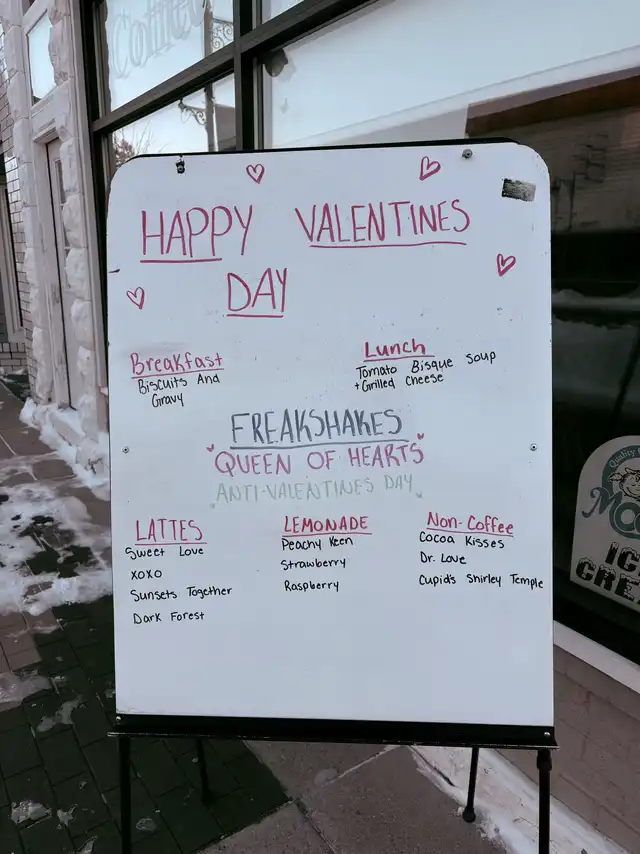 Coffee
HAPPY VALENTINES
DAY
Breakfast
Biscuits And
Gravy
Lunch
Tomato Bisque Soup
+Grilled Cheese
FREAKSHAKES
QUEEN OF HEARTS
ANTI-VALENTINES DAY
LATTES
Sweet Love
XOXO
Sunsets Together
Dark Forest
LEMONADE
Peachy Keen
Strawberry
Raspberry
Non-Coffee
Cocoa Kisses
Dr. Love
Cupid's Shirley Temple
Quality